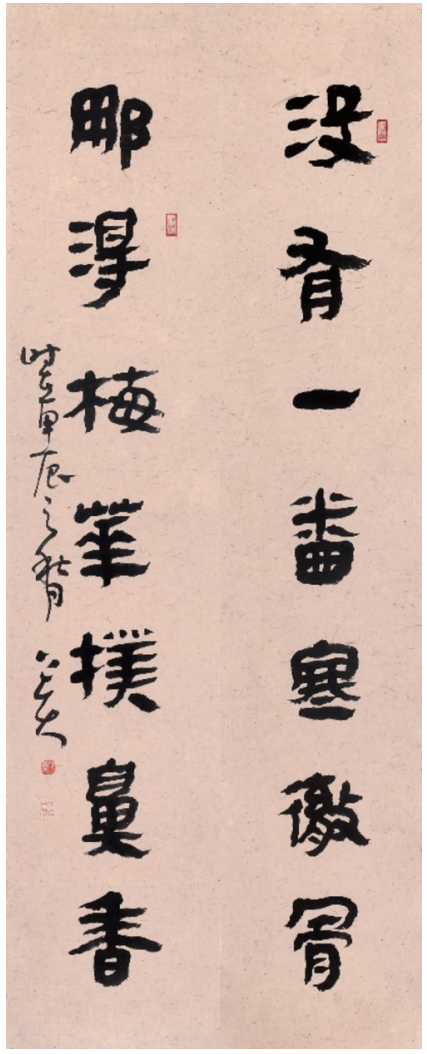 没有一番寒徹骨
那得梅華撲鼻香
时在庚辰之